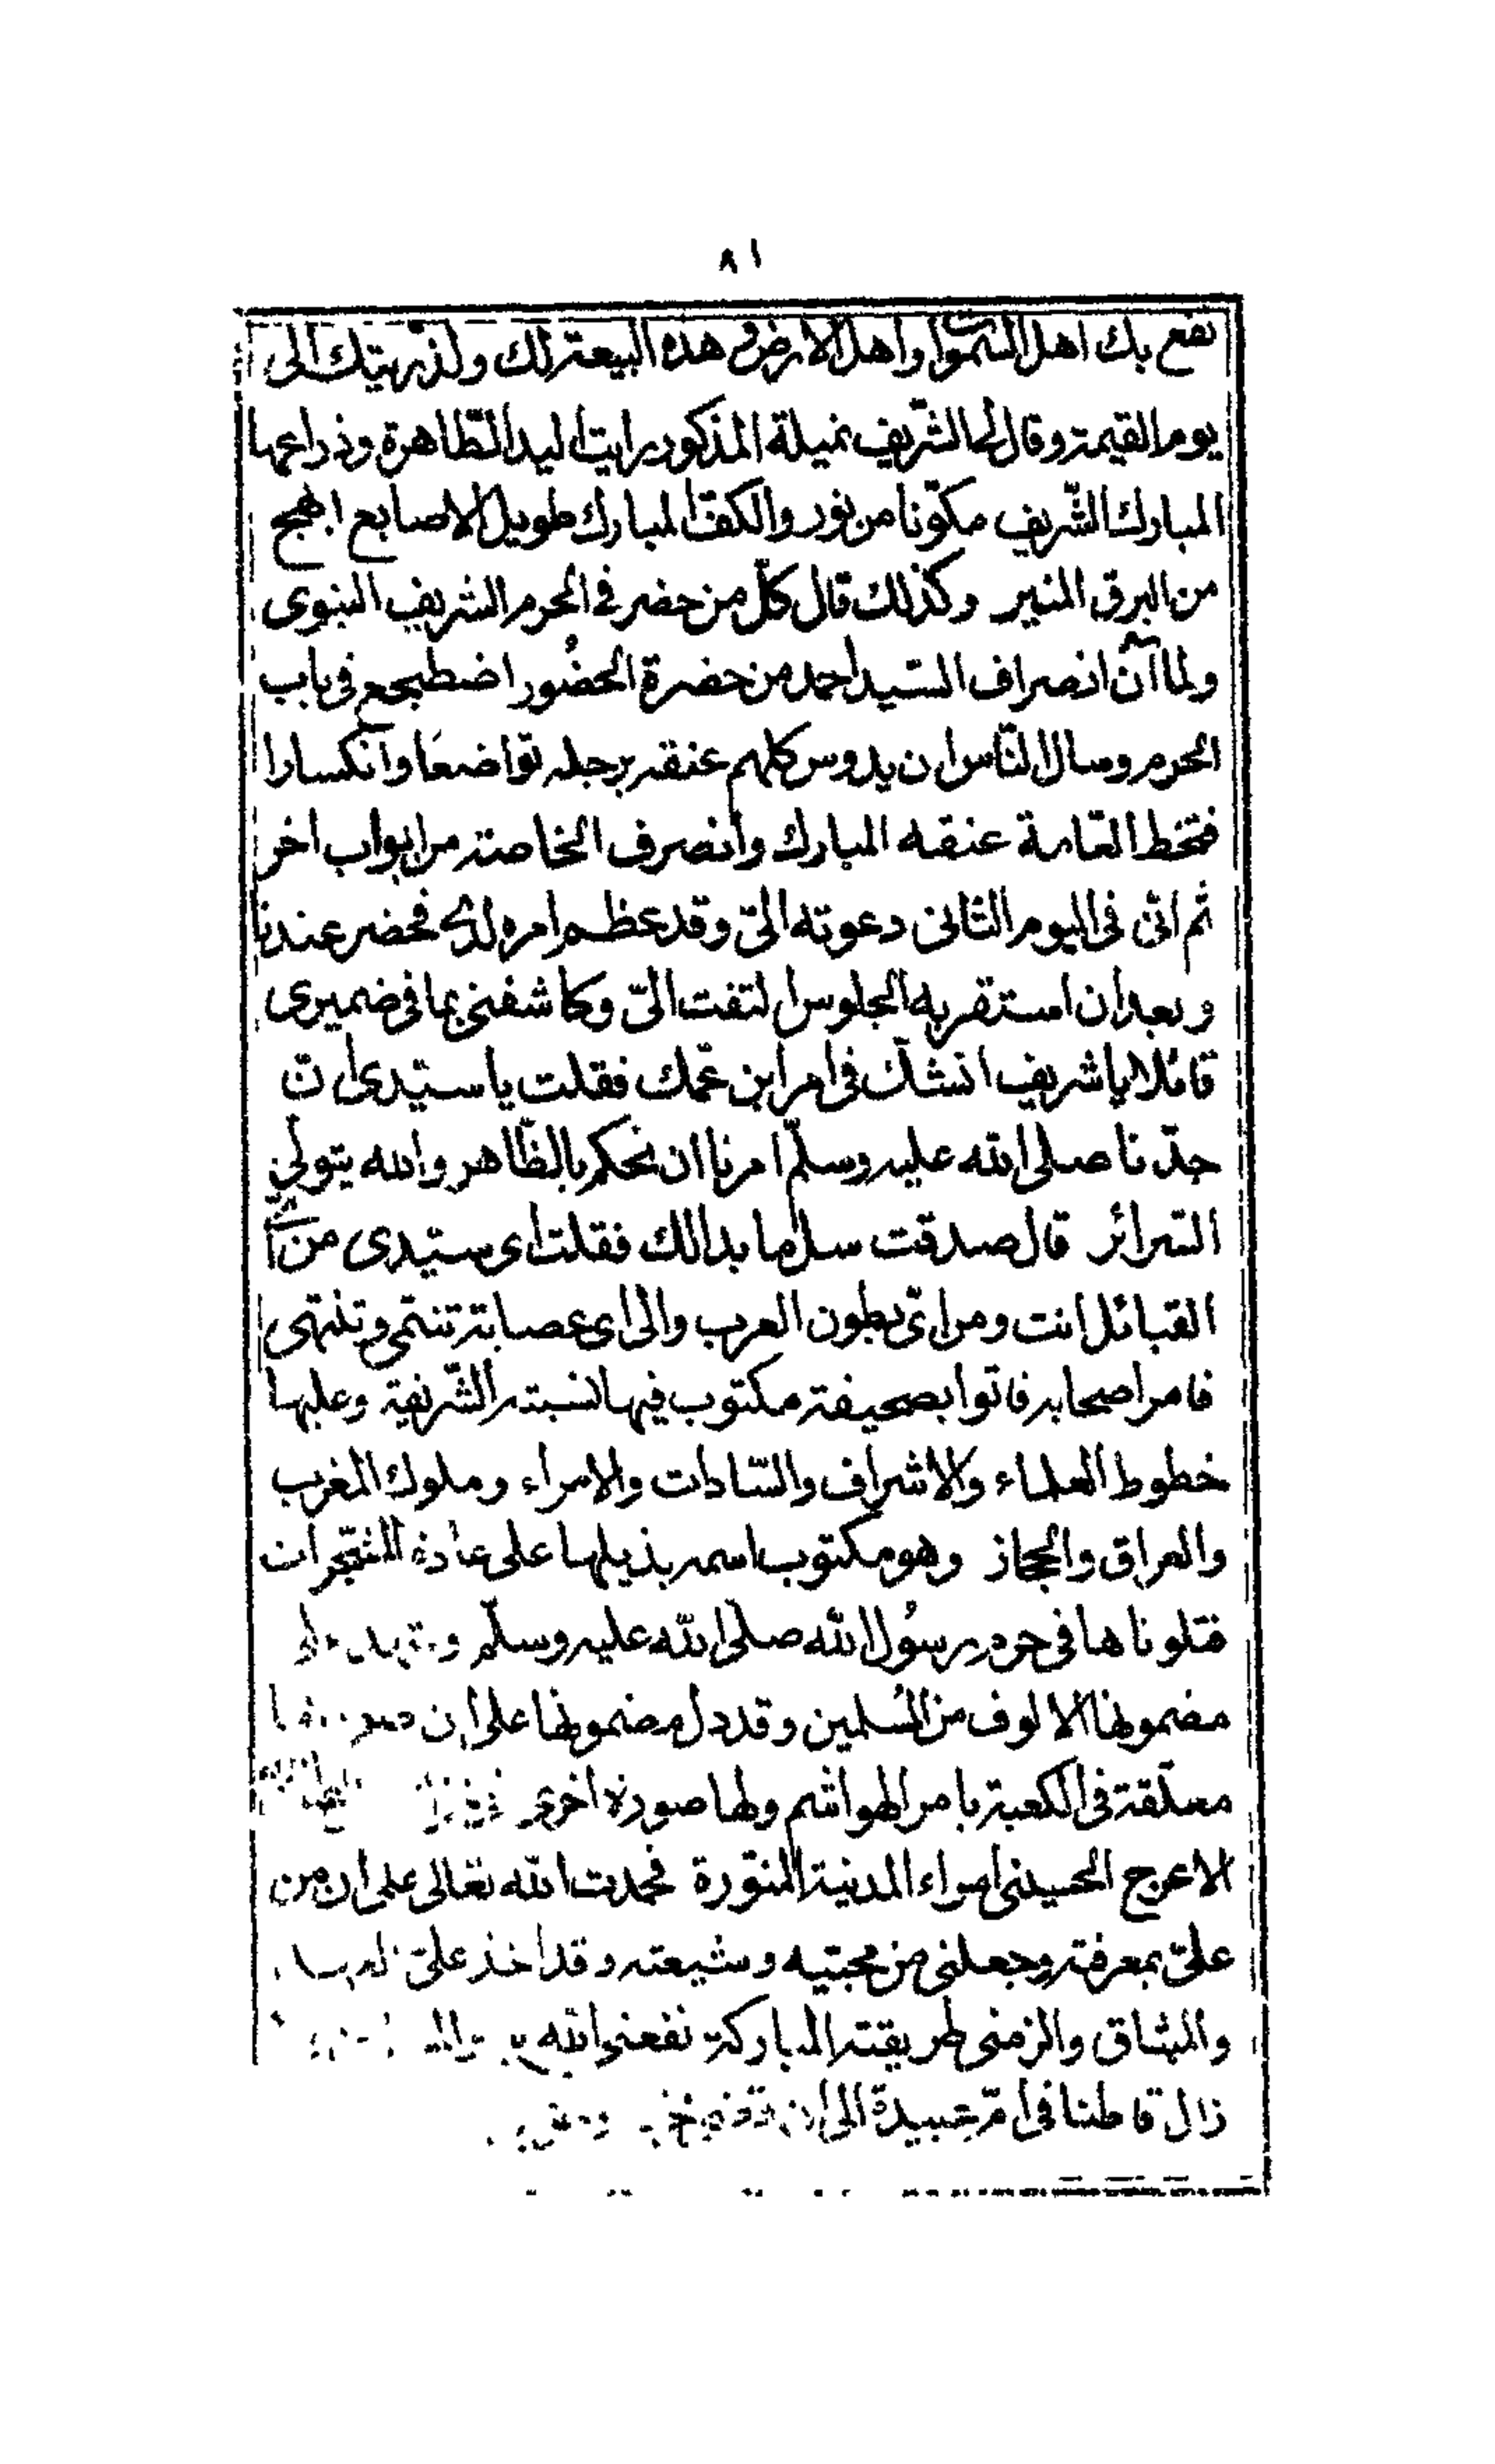 ٨١
نفع بك اهل السموات واهل الارض هذه البيعة لك ولذريتك الى
يوم القيمة وقال لى الشريف نميلة المذكور رايت اليد الطاهرة وذراعها
المبارك الشريف مكونا من نور والكف المبارك طويل الاصابع ابهج
من البرق المنير وكذلك قال كل من حضر فى الحرم الشريف النبوى
ولما آن انصراف السيد احمد من حضرة الحضور اضطجع فى باب
الحرم وسال الناس ان يدوس كلهم عنقه برجله تواضعا وانكسارا
فتخط العامة عنقه المبارك وانصرف الخاصة من ابواب اخر
ثم انى فى اليوم الثانى دعوته الىّ وقد عظم امره لدى فحضر عندنا
وبعد ان استقر به الجلوس التفت الىّ وكاشفنى بما فى ضميرى
قائلا يا شريف انشك فى امر ابن عمك فقلت يا سيدى ان
جدنا صلى الله عليه وسلم امرنا ان نحكم بالظاهر والله يتولى
السرائر قال صدقت سل ما بدالك فقلت اى سيدى من اى
القبائل انت ومن اىّ بطون العرب والى اى عصابة تنتمى وتنتهى
فامر اصحابه فاتوا بصحيفة مكتوب فيها نسبته الشريفة وعليها
خطوط العلماء والاشراف والسادات والامراء وملوك المغرب
والعراق والحجاز وهو مكتوب اسمه بذيلها على عادة المشجرات
فتلوناها فى حرم رسول الله صلى الله عليه وسلم
مضمونها الالوف من المسلمين وقد دل مضمونها على ان
معلقة فى الكعبة بامر الهواشم ولها صورة اخرى
الاعرج الحسينى امراء المدينة المنورة فحمدت الله تعالى على ان من
علىّ بمعرفته وجعلنى من محبيه وشيعته وقد اخذ علىّ
والميثاق والزمنى طريقته المباركة نفعنى الله
زال قاطنا فى ام عبيدة الى ان